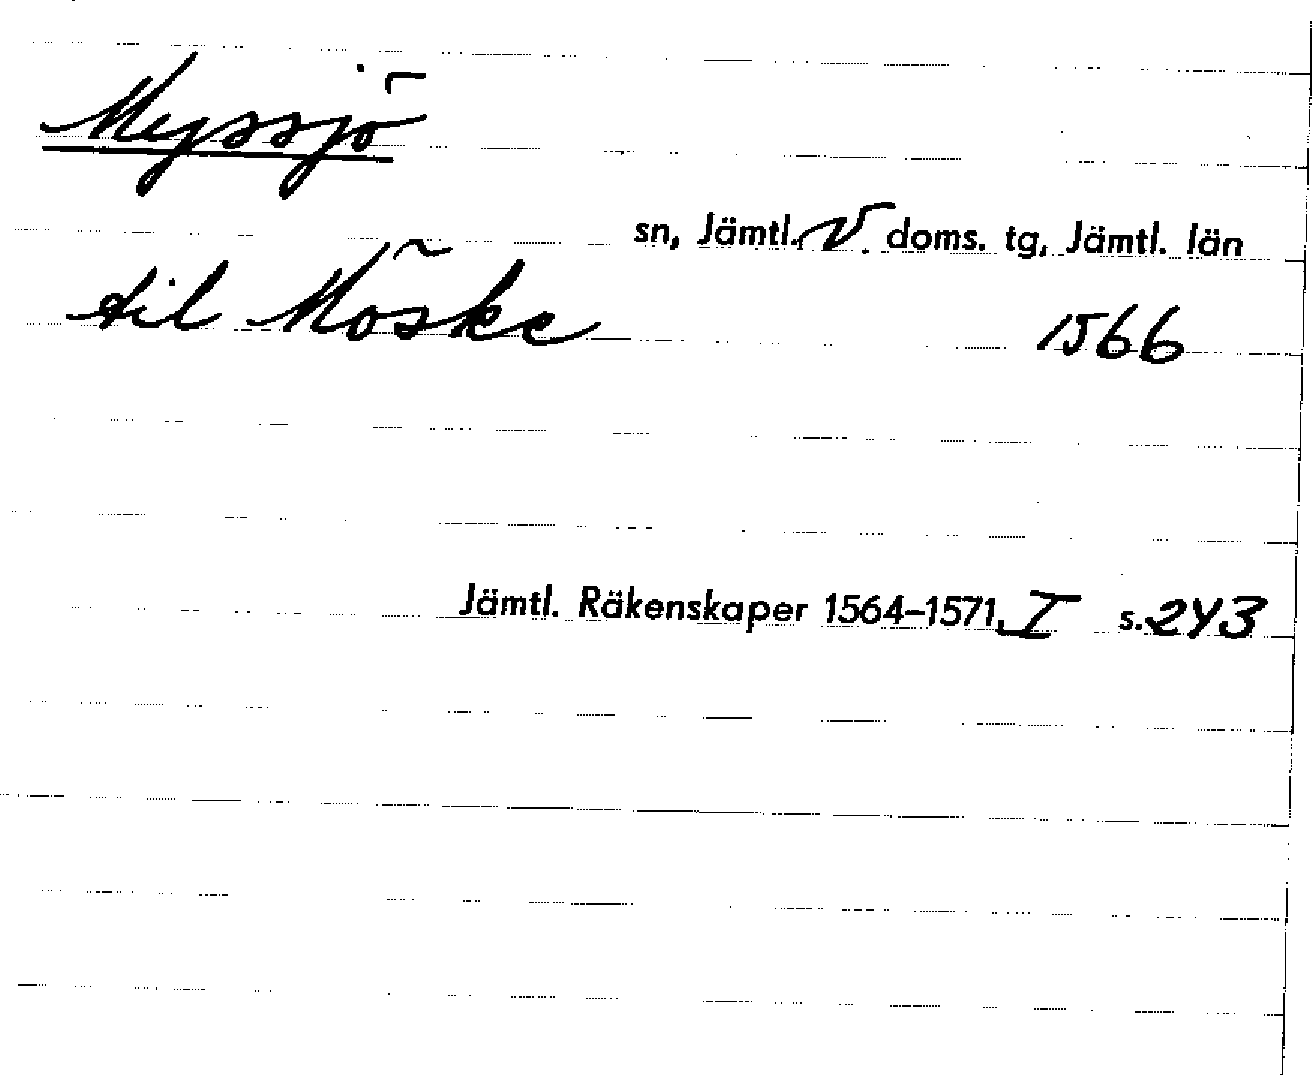 Myssjö
sn, Jämtl. V. doms. tg, Jämtl. län
til Möske 1566
Jämtl. Räkenskaper 1564–1571, I s. 243